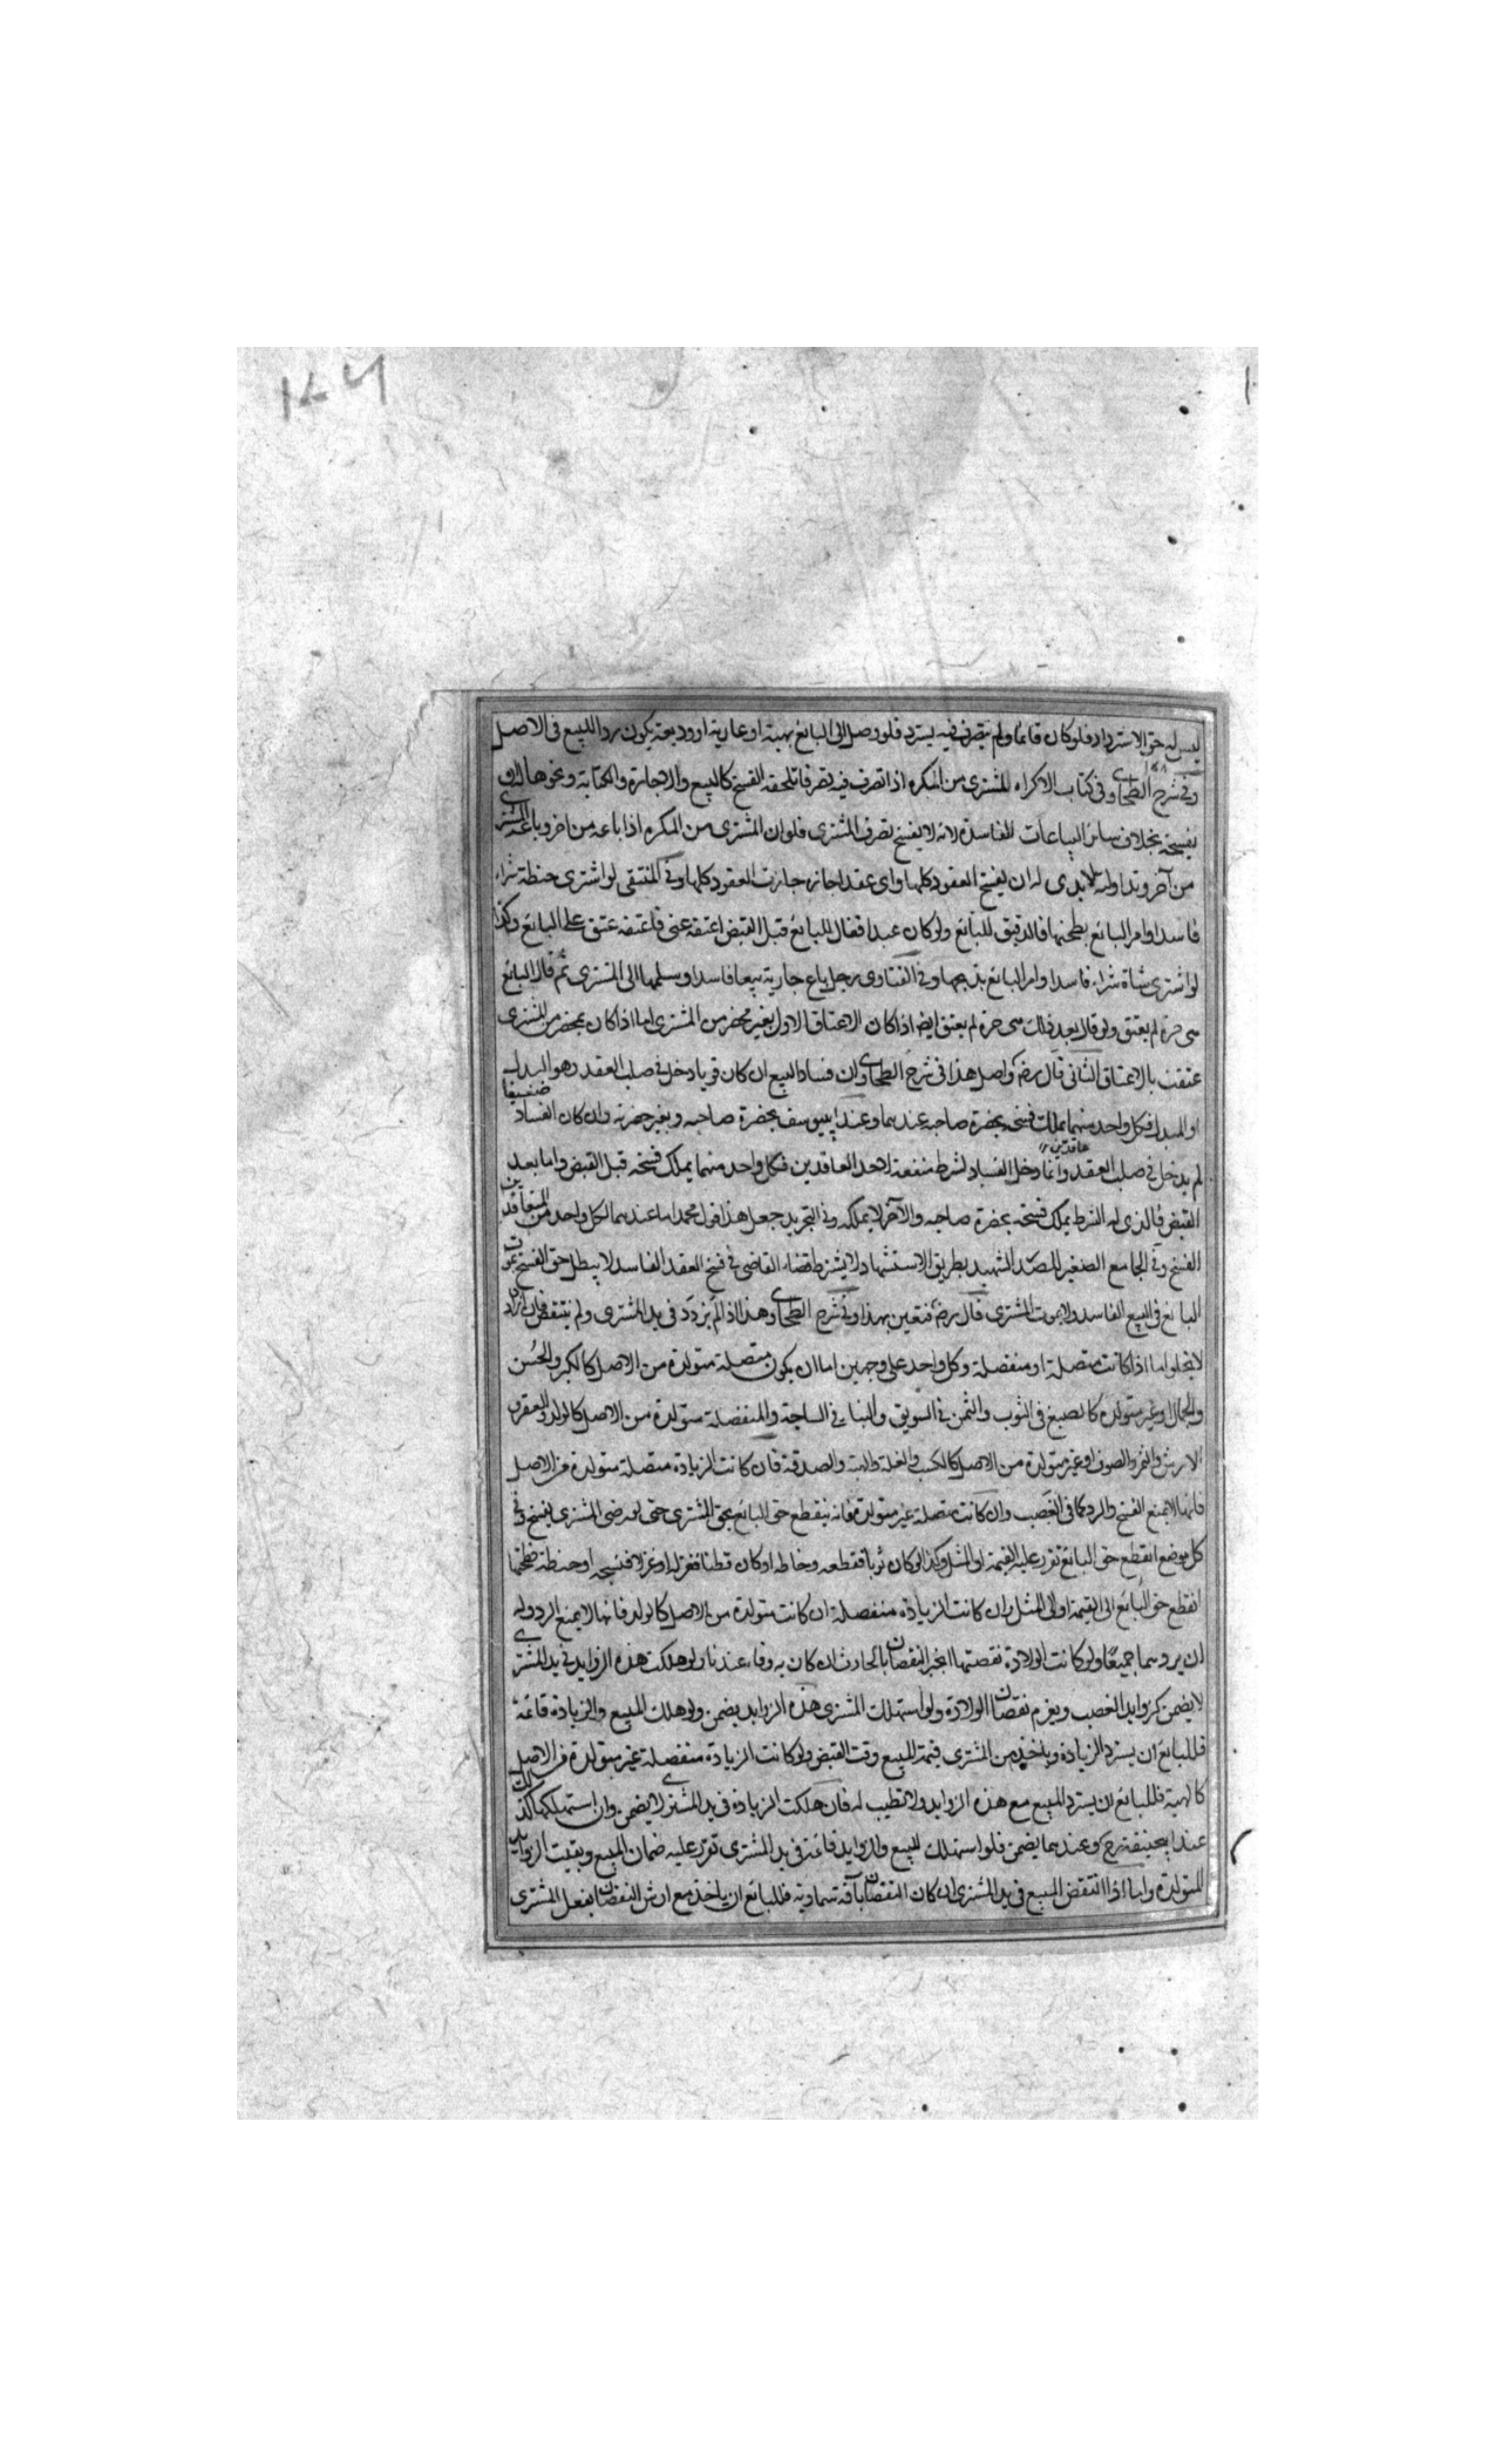 ليس له حق الاسترداد فلو كان قائما ولم يتصرف فيه يسترد فلو وصل الى البائع بهبة او عارية او وديعة يكون ردا للبيع فى الاصل
وفي شرح الطحاوى وفى كتاب الاكراه للمشترى من المكره اذا تصرف فيه تصرفا تلحقه الفسخ كالبيع والاجارة والكتابة ونحوها
يفسخه بخلاف سائر البياعات الفاسدة لانه لا يفسخ تصرف المشترى فلو ان المشترى من المكره اذا باعه من اخر وباعه المشترى
من آخر وتداولته الايدى له ان يفسخ العقود كلها واى عقد اجازه جازت العقود كلها وفى المنتقى لو اشترى حنطة شراء
فاسدا وامر البائع بطحنها فالدقيق للبائع ولو كان عبدا فقال للبائع قبل القبض اعتقه عنى فاعتقه عتق على البائع وكذا
لو اشترى شاة شراء فاسدا وامر البائع بذبحها وفى الفتاوى رجل باع جارية بيعا فاسدا وسلمها الى المشترى ثم قال البائع
هى حرة لم يعتق ولو قال بعد ذلك هى حرة لم يعتق ايضا اذا كان الاعتاق الاول بغير محضر من المشترى اما اذا كان بمحضر من المشترى
عتقت بالاعتاق الثانى قال رضه واصل هذا فى شرح الطحاوى ان فساد البيع ان كان قويا دخل فى صلب العقد وهو البدل
او المبدل فكل واحد منهما يملك فسخه بحضرة صاحبه عندهما وعند ابيوسف بحضرة صاحبه وبغير حضرته وان كان الفساد ضعيفا
لم يدخل فى صلب العقد وانما دخل الفساد لشرط منفعة لاحد العاقدين فكل واحد منهما يملك فسخه قبل القبض واما بعد
القبض فالذى له الشرط يملك فسخه بحضرة صاحبه والآخر لا يملكه وفى التجريد جعل هذا قول محمد اما عندهما لكل واحد من المتعاقدين
الفسخ وفى الجامع الصغير للصدر الشهيد بطريق الاستشهاد لا يشترط قضاء القاضى فى فسخ العقد الفاسد لا يبطل حق الفسخ بموت
البائع فى البيع الفاسد ولا بموت المشترى قال رضه فتعين بهذا وفى شرح الطحاوى وهذا اذا لم يزدد فى يد المشترى ولم ينتقض فان ازداد
لا يخلوا اما اذا كانت متصلة او منفصلة وكل واحد على وجهين اما ان يكون متصلة متولدة من الاصل كالكبر والحسن
والجمال او غير متولدة كالصبغ فى الثوب والثمن فى السويق والبنا فى الساجة والمنفصلة متولدة من الاصل كالولد والعقر و
الارش والثمر والصوف او غير متولدة من الاصل كالكسب والغلة والهبة والصدقة فان كانت الزيادة متصلة متولدة من الاصل
فانها لا يمنع الفسخ والرد كما فى الغصب وان كانت متصلة غير متولدة فانه ينقطع حق البائع بحق المشترى حتى لو رضى المشترى يفسخ وفى
كل موضع انقطع حق البائع تقرر عليه القيمة او المثل وكذا لو كان ثوبا فقطعه وخاطه او كان قطنا فغزله او غزلا فنسجه او حنطة فطحنها
انقطع حق البائع الى القيمة او الى المثل وان كانت الزيادة منفصلة ان كانت متولدة من الاصل كالولد فانها لا يمنع الرد وله
ان يردهما جميعا ولو كانت الولادة نقصتها انجبر النقصان بالحادث ان كان به وفاء عندنا ولو هلكت هذه الزوايد فى يد المشترى
لا يضمن كزوايد الغصب ويغرم نقصان الولادة ولو استهلك المشترى هذه الزوايد يضمن ولو هلك المبيع والزيادة قائمة
فللبائع ان يسترد الزيادة وياخذ من المشترى قيمة المبيع وقت القبض ولو كانت الزيادة منفصلة غير متولدة من الاصل
كالهبة فللبائع ان يسترد المبيع مع هذه الزوايد ولا تطيب له فان هلكت الزيادة فى يد المشترى لا يضمن وان استهلكها كذلك
عند ابيحنيفة رح وعندهما يضمن فلو استهلك المبيع والزوايد قائمة فى يد المشترى تقرر عليه ضمان المبيع وبقيت الزوايد
المتولدة واما اذا انتقض المبيع فى يد المشترى ان كان النقصان بآفة سماوية فللبائع ان ياخذ مع ارش النقصان بفعل المشترى